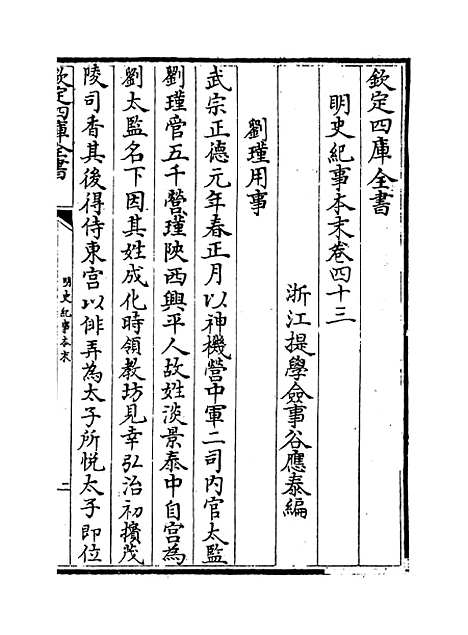 欽定四庫全書
明史紀事本末卷四十三
浙江提學僉事谷應泰編
劉瑾用事
武宗正德元年春正月以神機營中軍二司內官太監
劉瑾管五千營瑾陜西興平人故姓淡景泰中自宫為
劉太監名下因其姓成化時領教坊見幸弘治初擯茂
陵司香其後得侍東宫以俳弄為太子所悅太子即位
欽定四庫全書
明史紀事本末